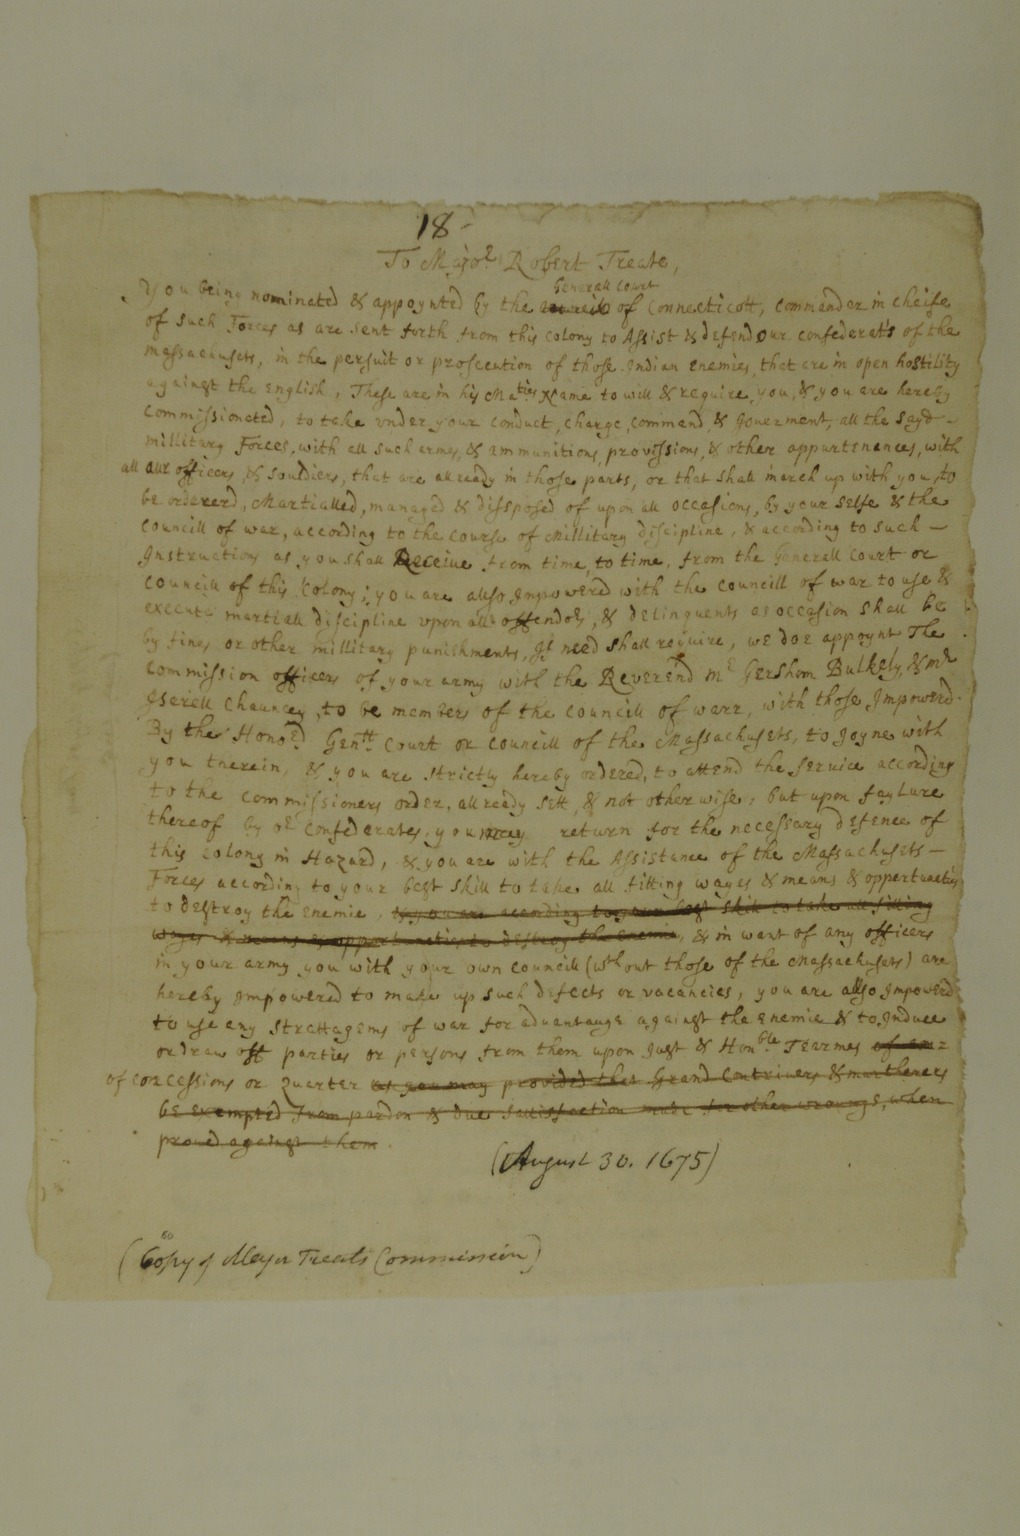 18-
To Majo^r Robert Treate,
Generall Court
You being nominated & appoynted by the Councill of Connecticott, Commander in cheife
of such Forces as are sent forth from this colony to Assist & defend our confederats of the
massachusets, in the persuit or prosecution of those Indian enemies, that are in open hostility
against the English, These are in his Ma^ties Name to will & require you, & you are hereby
Commissionated, to take vnder your conduct, charge, command, & Gouerment, all the sayd -
millitary Forces, with all such armes, & ammunitions, provissions, & other appurtenances, with
all our officers, & souldiers, that are allready in those parts, or that shall march up with you, to
be ordererd, Martialled, managed & dissposed of upon all occasions, by your selfe & the
Councill of war, according to the course of Millitary discipline, & according to such -
Instructions as you shall Receiue from time, to time, from the Generall Court or
Councill of this Colony; you are allso Impowered with the Councill of war to use &
execute martiall discipline vpon all offendo^rs, & delinquents as occasion shall be
by fines or other millitary punishments, If need shall require, we doe appoynt The
Commission officers of your army with the Reverend m^r Gershom Bulkely, & m^r
Iserell Chauncey, to be members of the Councill of warr, with those Impowerd
By the Hono^rd Gen^ll Court or Councill of the Massachusets, to Joyne with
you therein, & you are strictly hereby ordered, to attend the service according
to the commissioners order, allready sett, & not otherwise, but upon faylure
thereof by o^r confederates, you may return for the necessary defence of
this colony in Hazard, & you are with the Assistance of the Massachusets -
Forces according to your best skill to take all fitting wayes & means & oppertunities
to destroy the enemie, & you are according to your best skill to take all fitting
wayes & means & oppertunities to destroy the enemie, & in want of any officers
in your army you with your own councill (w^thout those of the Massachusets) are
hereby Impowered to make up such defects or vacancies, you are allso Impowerd
to use any strattagems of war for aduantauge against the enemie & to Induce
or draw off parties or persons from them upon Just & Hon^ble Tearmes of our
of concessions or Quarter as you may provided that Grand Contriuers & murtherers
be exempted from pardon & due sattisfaction made for other wrongs, when
proued against them.
(August 30. 1675)
(Copy of Major Treats Commission)